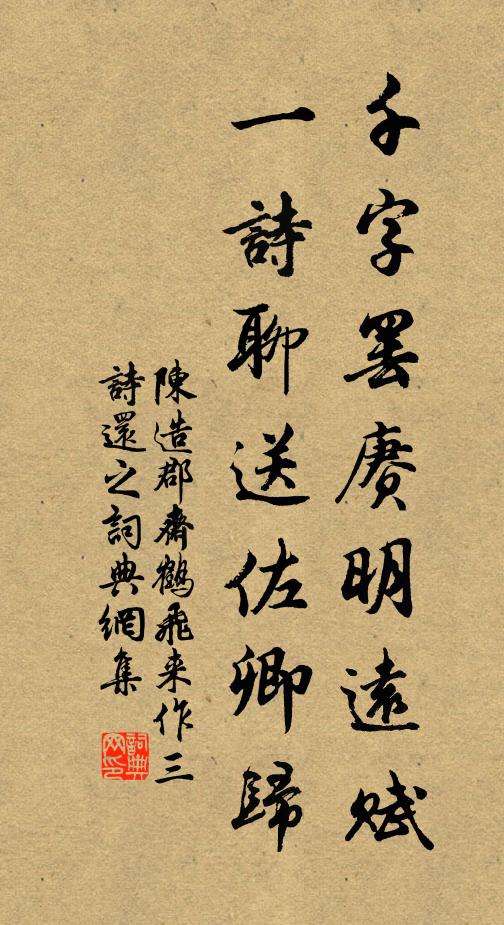 千字罢賡明遠賦
一詩聊送佐卿歸
陳造郡齋鶴飛来作三
詩還之詞典網集
詞典网印